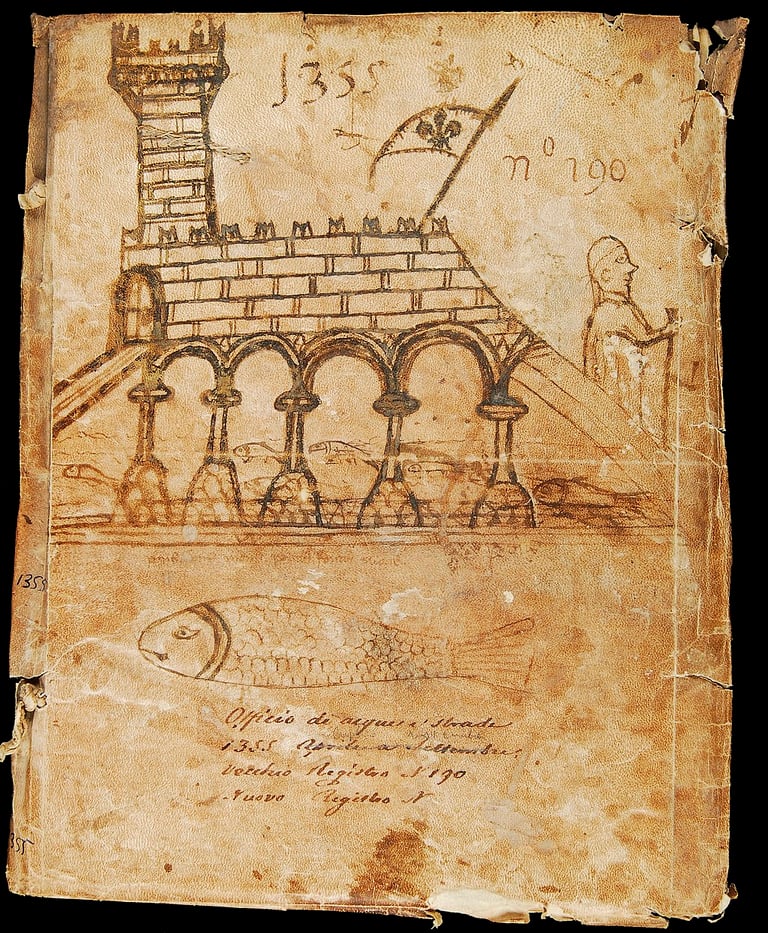 1355
n° 190
1355
Officio de acque e strade
1355 Aprile a Settembre
Vecchio Registro N 190
Nuovo Registro N
355